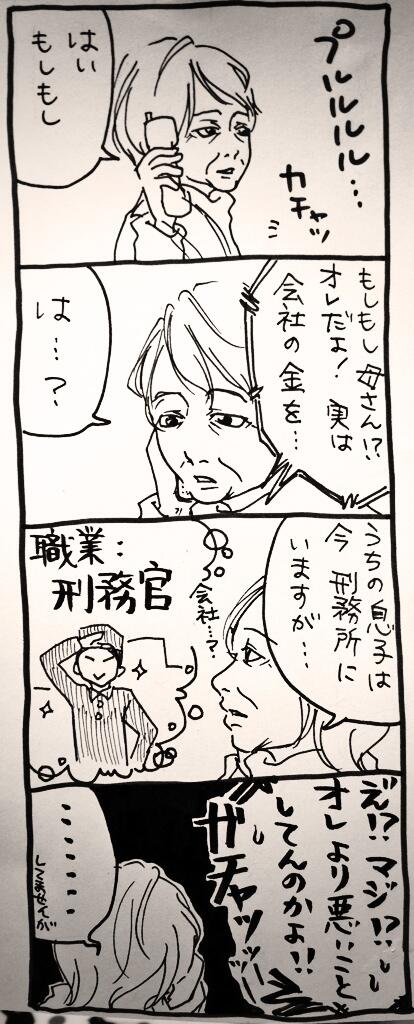 プルルルル…
カチャッ
はい
もしもし
もしもし母さん!?
オレだよ!実は
会社の金を…
は…?
うちの息子は
今刑務所に
いますが…
会社…?
職業:
刑務官
え!?マジ!?
オレより悪いこと
してんのかよ!!
ガチャッ
……